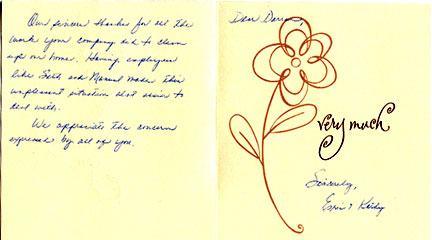 Our sincere thanks for all the
work your company did to clean
up our home. Having employees
like Seth and Manuel made this
unpleasant situation alot easier to
deal with.
We appreciate the concern
expressed by all of you.
Dear Darren,
very much
Sincerely,